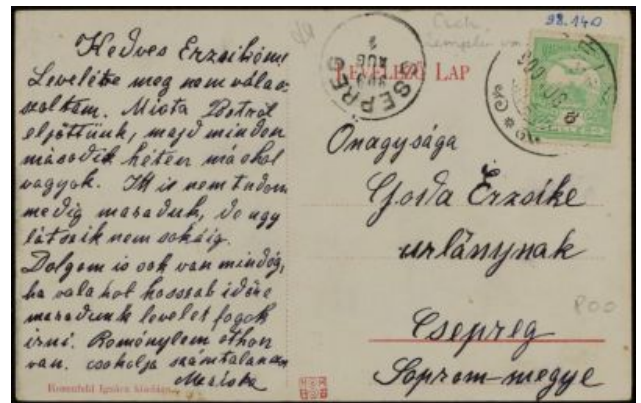 Kedves Erzsikém!
Levelére meg nem vála-
szoltam. Miota Pestről
eljöttünk, majd minden
második héten máshol
vagyok. Itt is nem tudom
medig maradunk, de ugy
látszik nem sokáig.
Dolgom is sok van mindég,
ha vala hol hosszab időre
maradunk levelet fogok
irni. Reménylem othon
van. csokolja számtalanszor
Mariska
Rosenfeld Ignácz kiadása
98.140
LEVELEZŐ LAP
CSEPREG
Önagysága
Erzsike
urlánynak
Csepreg
Soprom-megye